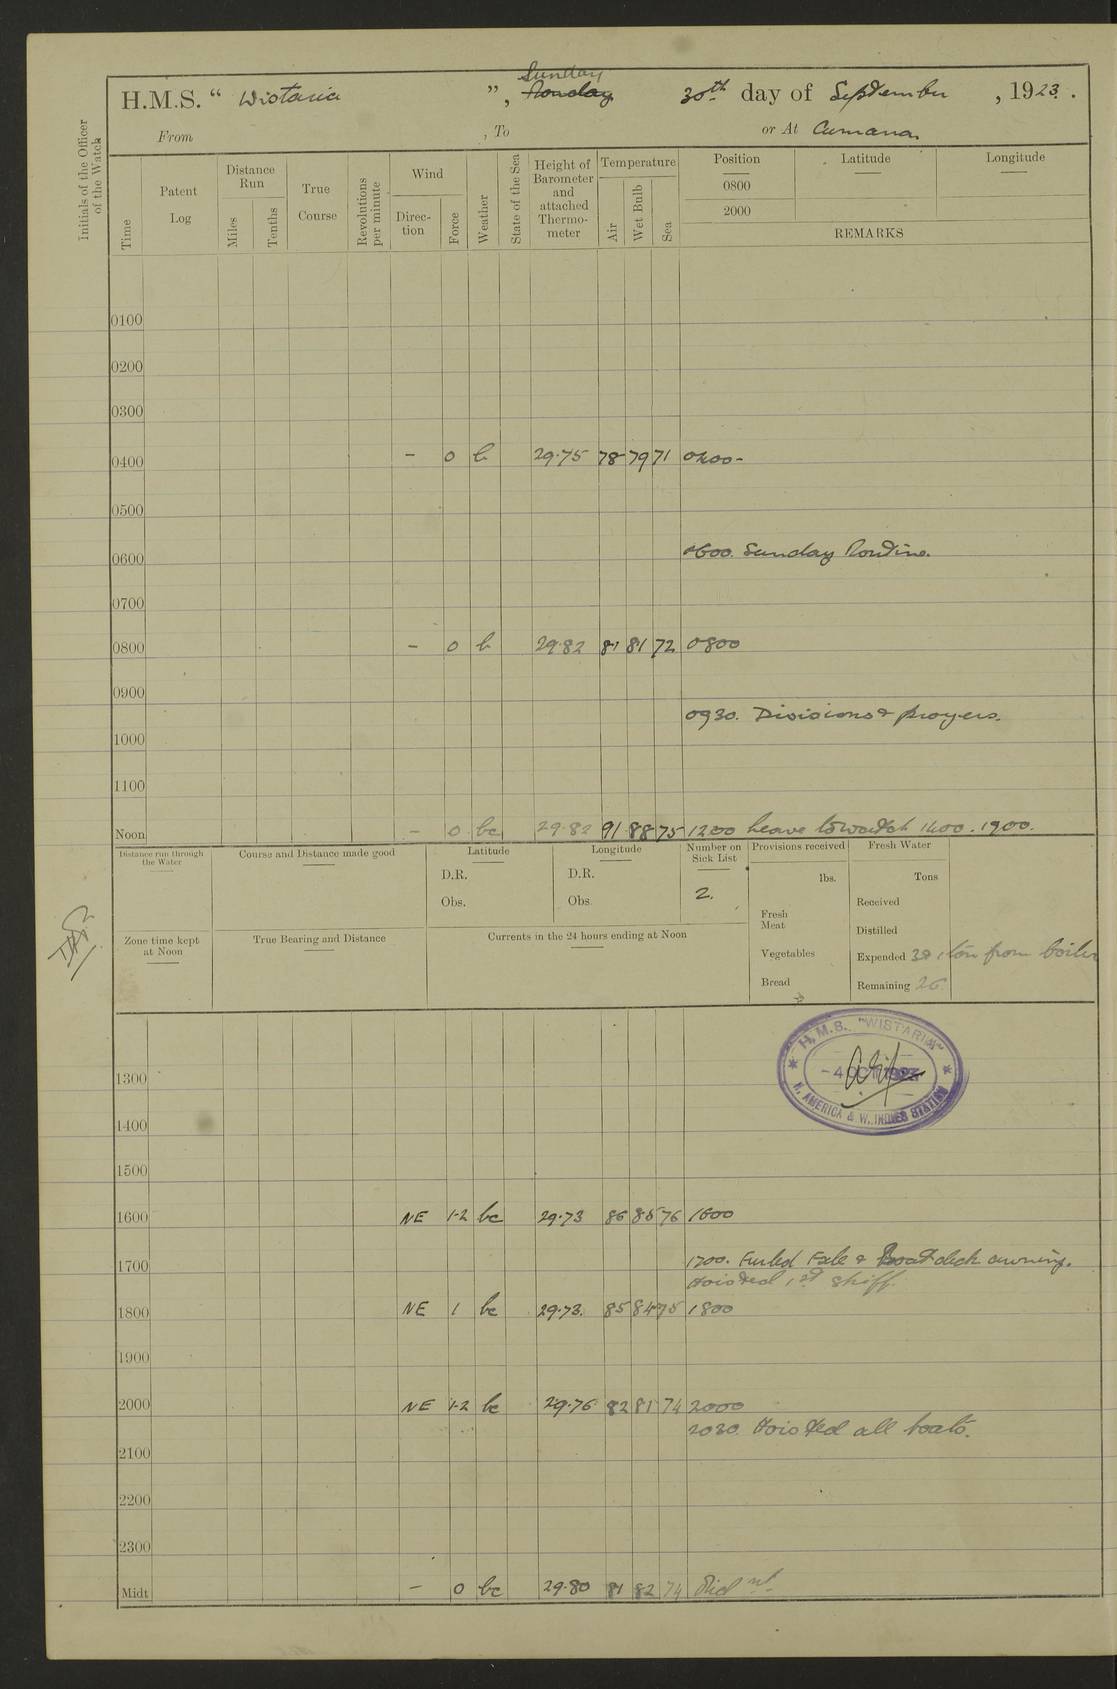 Sunday
H.M.S. “ Wistaria ”, Monday 30th day of September , 1923.
From , To or At Cumana.
Initials of the Officer of the Watch
Time
Patent Log
Distance Run
Miles
Tenths
True Course
Revolutions per minute
Wind
Direction
Force
Weather
State of the Sea
Height of Barometer and attached Thermometer
Temperature
Air
Wet Bulb
Sea
Position Latitude Longitude
0800
2000
REMARKS
0100
0200
0300
0400 - 0 b 29.75 78 79 71 0400-
0500
0600 0600. Sunday Routine.
0700
0800 - 0 b 29.82 81 81 72 0800
0900
0930. Divisions & prayers.
1000
1100
Noon - 0 bc 29.82 91 88 75 1200 leave to watch 1400. 1900.
Distance run through the Water
Course and Distance made good
Latitude
D.R.
Obs.
Longitude
D.R.
Obs.
Number on Sick List
2.
Provisions received
lbs.
Fresh Meat
Vegetables
Bread
Fresh Water
Tons
Received
Distilled
Expended 3 1 ton from boiler
Remaining 26
Zone time kept at Noon
True Bearing and Distance
Currents in the 24 hours ending at Noon
H.M.S. "WISTARIA"
-4 OCT 1923
N. AMERICA & W. INDIES STATION
1300
1400
1500
1600 NE 1-2 bc 29.73 86 85 76 1600
1700 1700. Furled Fxle & Boat deck awning.
Hoisted 1st skiff.
1800 NE 1 bc 29.73. 85 84 75 1800
1900
2000 NE 1-2 bc 29.76 82 81 74 2000
2030. Hoisted all boats.
2100
2200
2300
Midt - 0 bc 29.80 81 82 74 Mid nt.